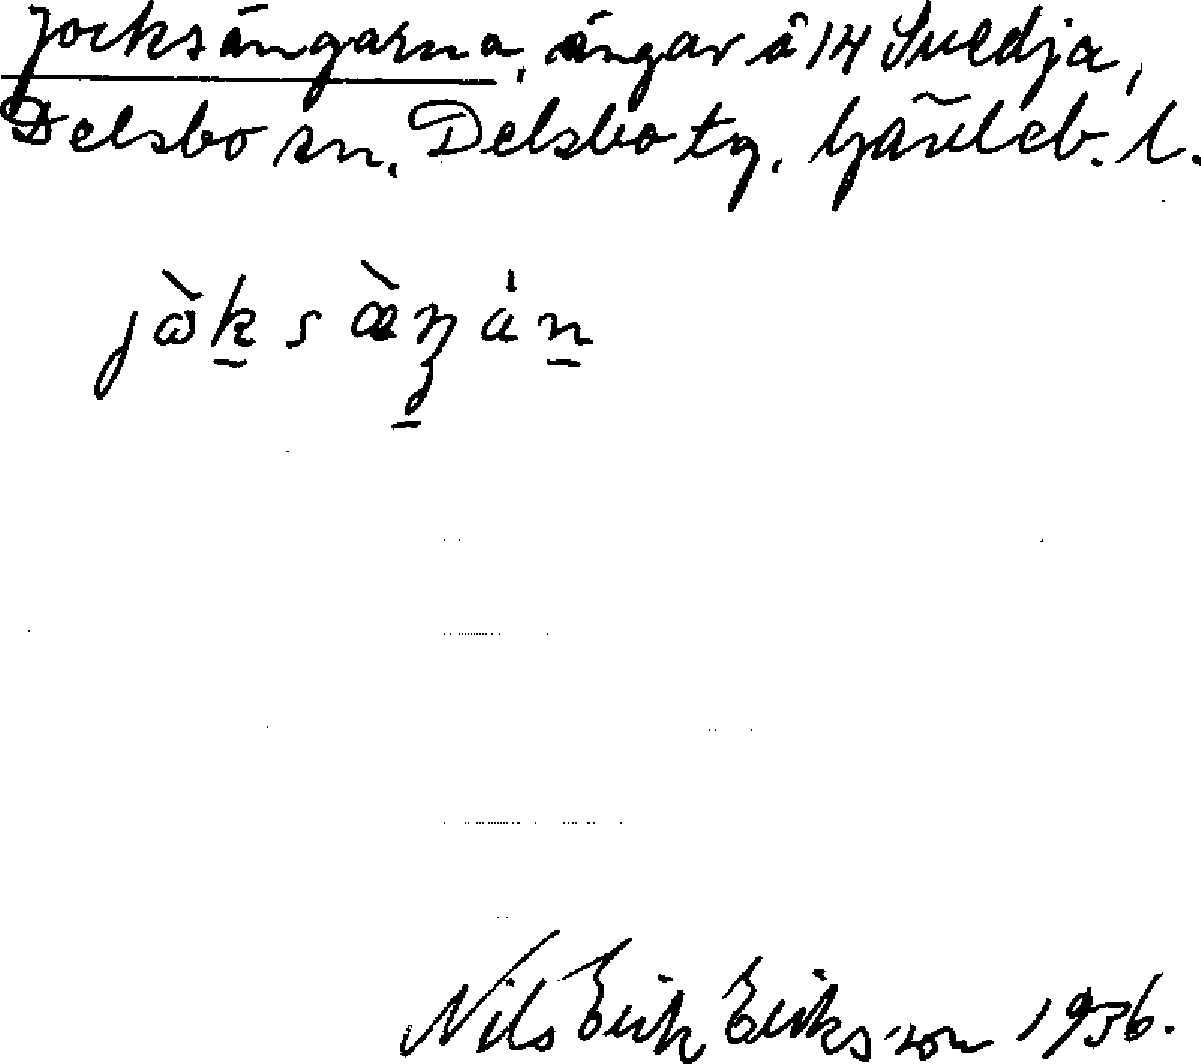 Jocksängarna, ängar å 14 Svedja,
Delsbo sn. Delsbo tg. Gävleb. l.
jὼk̠ s æ̀ŋ̠ án̠
Nils Erik Eriksson 1936.